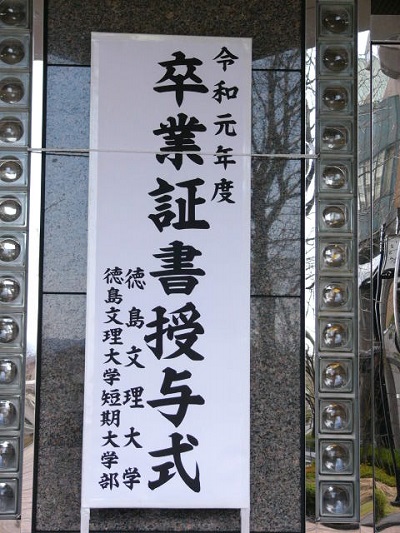 令和元年度
卒業証書授与式
徳島文理大学
徳島文理大学短期大学部